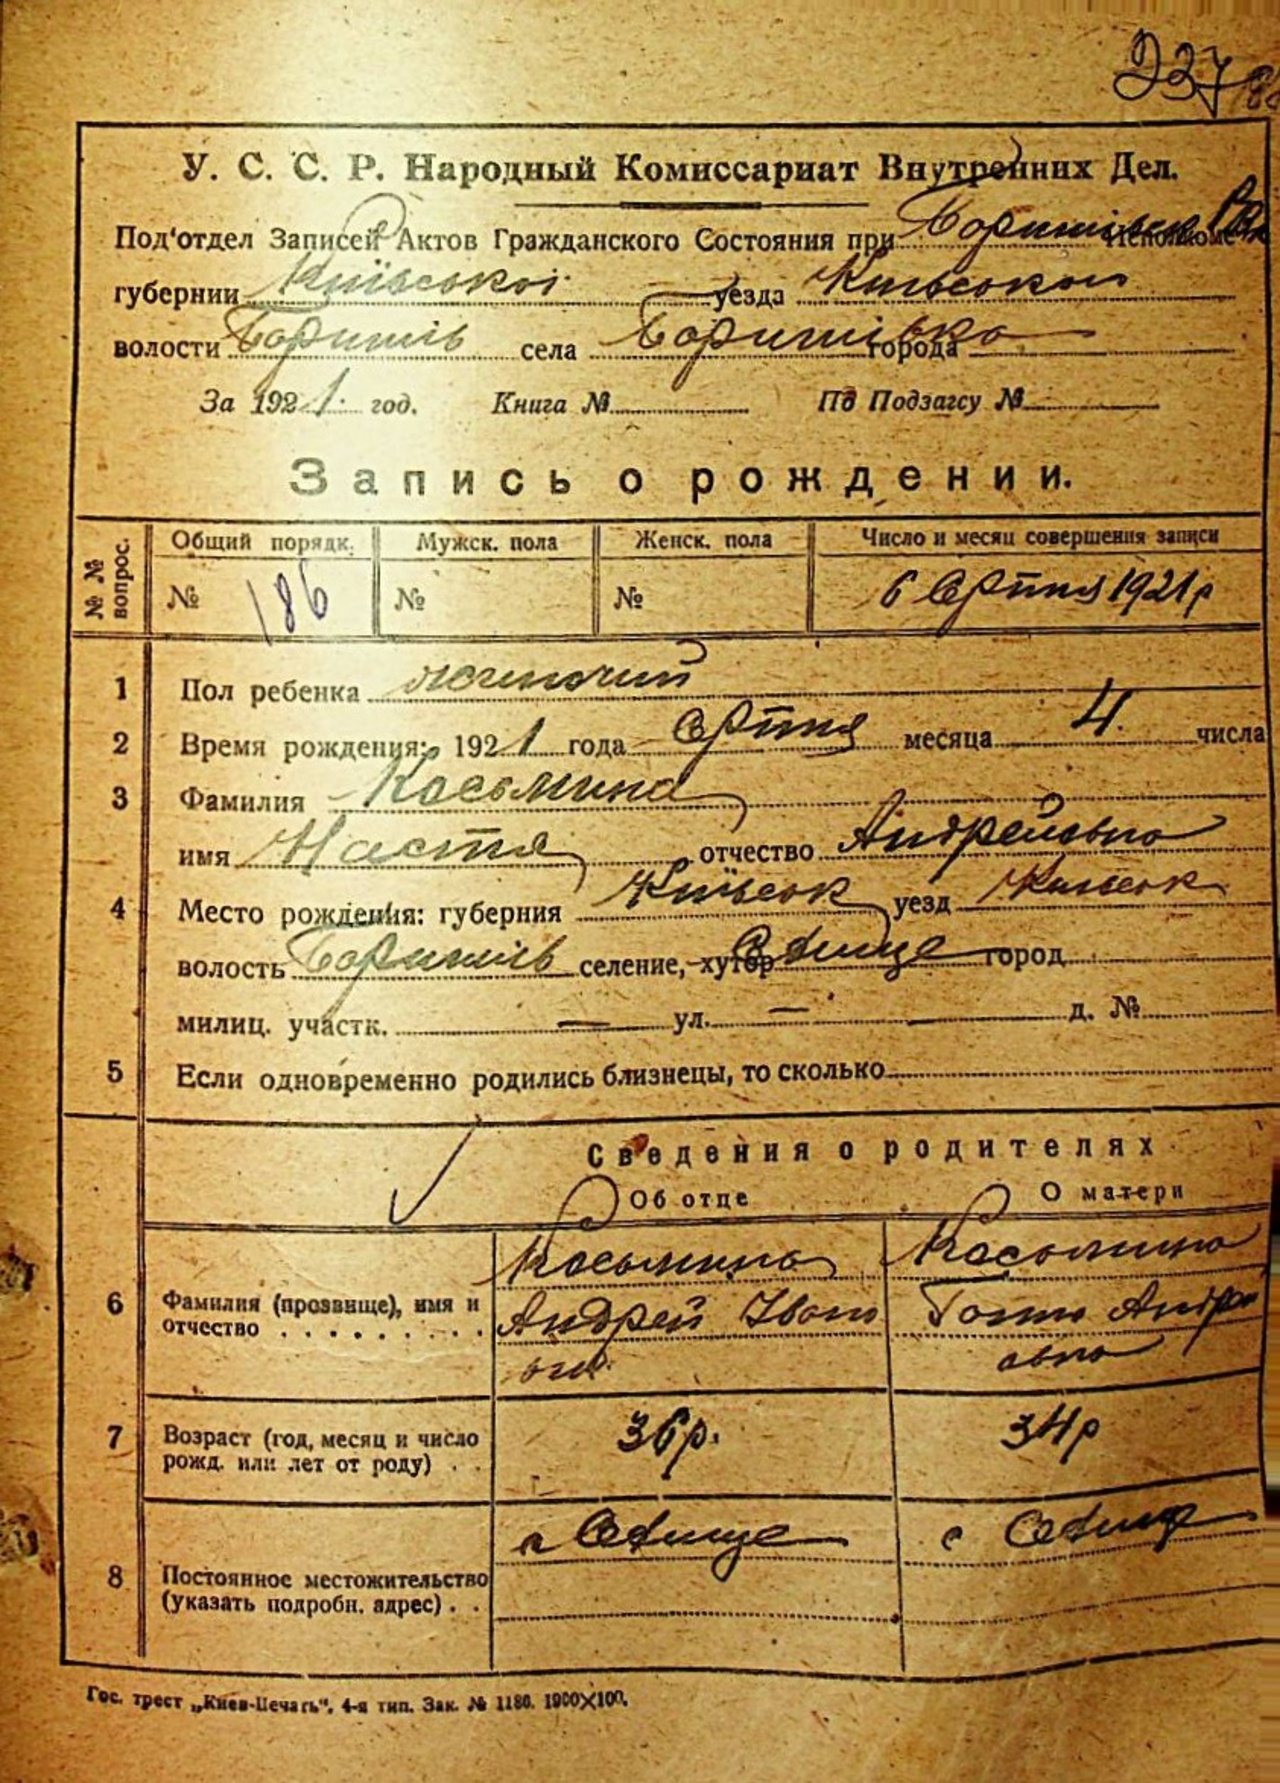 237
У. С. С. Р. Народный Комиссариат Внутренних Дел.
Под‘отдел Записей Актов Гражданского Состояния при
губернии Київської уезда
волости села города
За 1921. год. Книга № По Подзагсу №
Запись о рождении.
№ № вопрос. Общий порядк. Мужск. пола Женск. пола Число и месяц совершения записи
№ 186 № № 6 Серпня 1921 р
1 Пол ребенка жиночий
2 Время рождения: 1921 года Серпня месяца 4. числа
3 Фамилия Косьмина
имя Настя отчество Андреевна
4 Место рождения: губерния Київськ уезд
волость селение, хутор город
милиц. участк. — ул. — д. №
5 Если одновременно родились близнецы, то сколько
Сведения о родителях
Об отце О матери
Косьмина
6 Фамилия (прозвище), имя и Андрей Іван
отчество . . . . . . . . .
7 Возраст (год, месяц и число 36 р. 34 р
рожд. или лет от роду) . .
8 Постоянное местожительство
(указать подробн. адрес) . .
Гос. трест „Киев-Печать“. 4-я тип. Зак. № 1186. 1900×100.